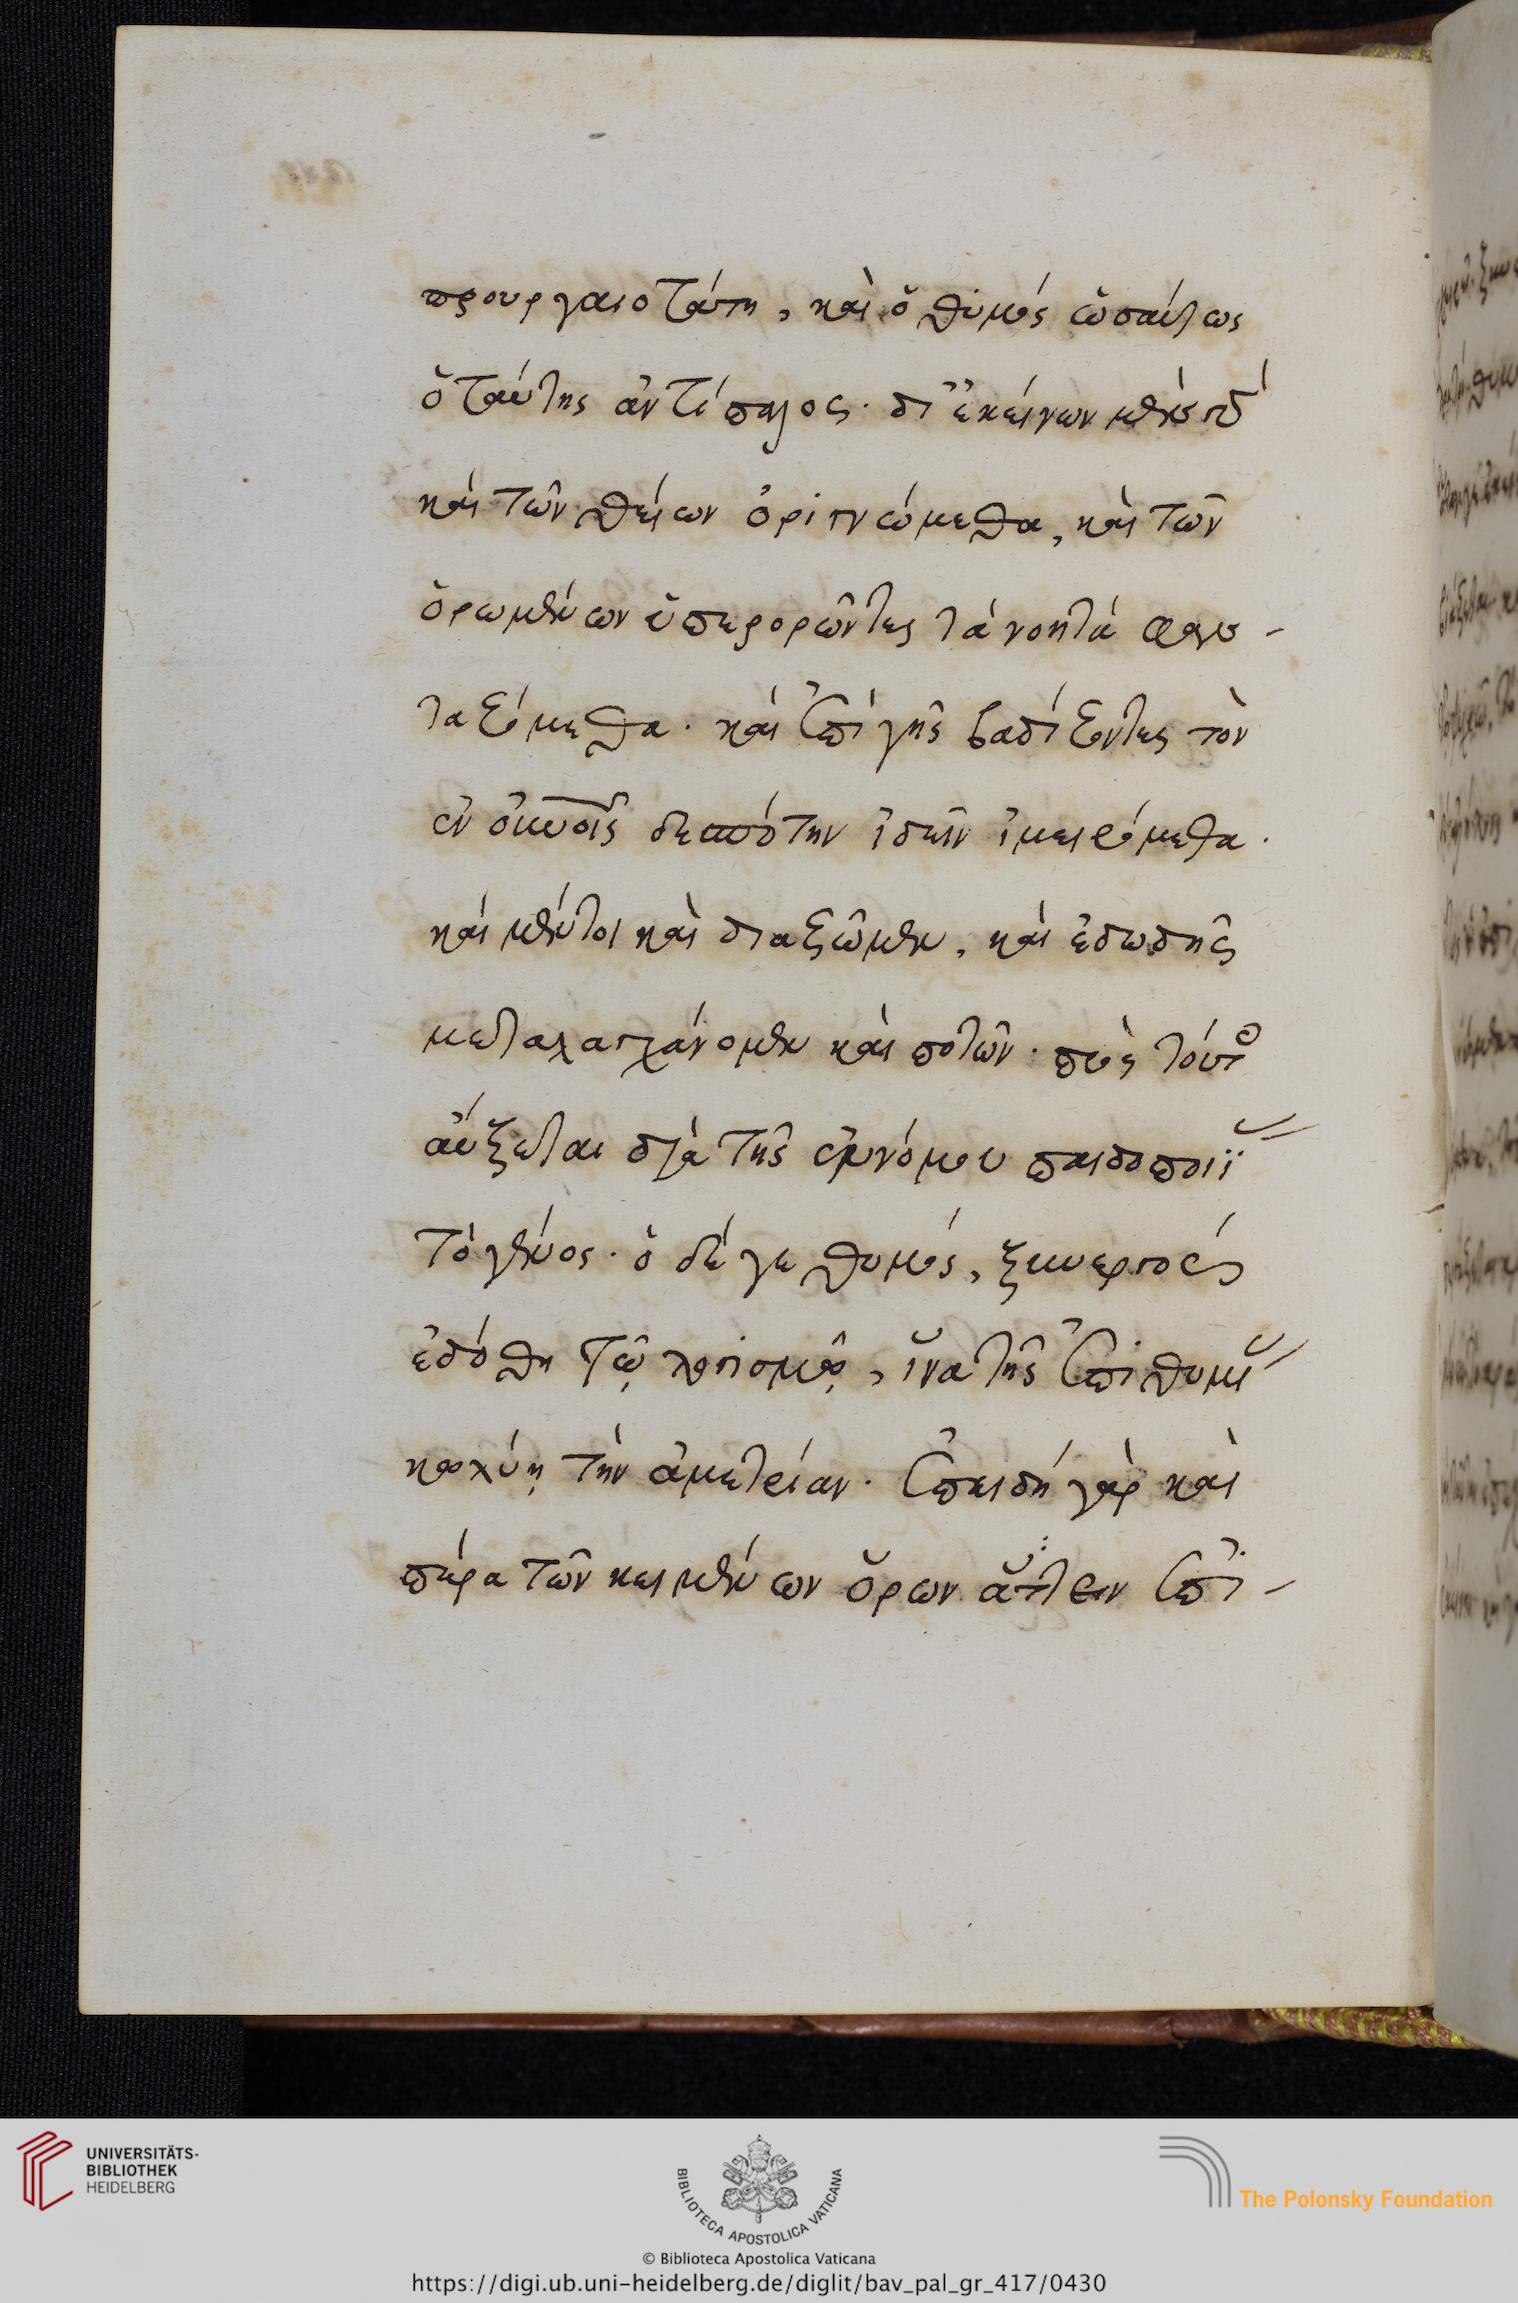 προυργιαιοτάτη, καὶ ὁ θυμός ὡσαύτως
ὁ ταύτης ἀντίπαλος· δι' ἐκείνων μὲν
καὶ τῶν θείων ὀριγνώμεθα, καὶ τῶν
ὁρωμένων ὑπερορῶντες τὰ νοητὰ φαν-
ταζόμεθα· καὶ ἐπὶ γῆς βαδίζοντες τὸν
ἐν οὐνοῖς δεσπότην ἰδεῖν ἱμειρόμεθα.
καὶ μέντοι καὶ διαζῶμεν, καὶ ἐδωδῆς
μεταλαγχάνομεν καὶ ποτῶν· πρὸς τούτοις
αὔξεται διὰ τῆς ἐννόμου παιδοποιΐας
τὸ γένος· ὁ δέ γε θυμός, ξυνεργὸς
ἐδόθη τῷ λογισμῷ, ἵνα τῆς ἐπιθυμίας
κωλύῃ τὴν ἀμετρίαν· ἐπειδὴ γὰρ καὶ
πέρα τῶν κειμένων ὅρων ἄττειν ἐπι-
UNIVERSITÄTS-
BIBLIOTHEK
HEIDELBERG
BIBLIOTECA APOSTOLICA VATICANA
The Polonsky Foundation
© Biblioteca Apostolica Vaticana
https://digi.ub.uni-heidelberg.de/diglit/bav_pal_gr_417/0430